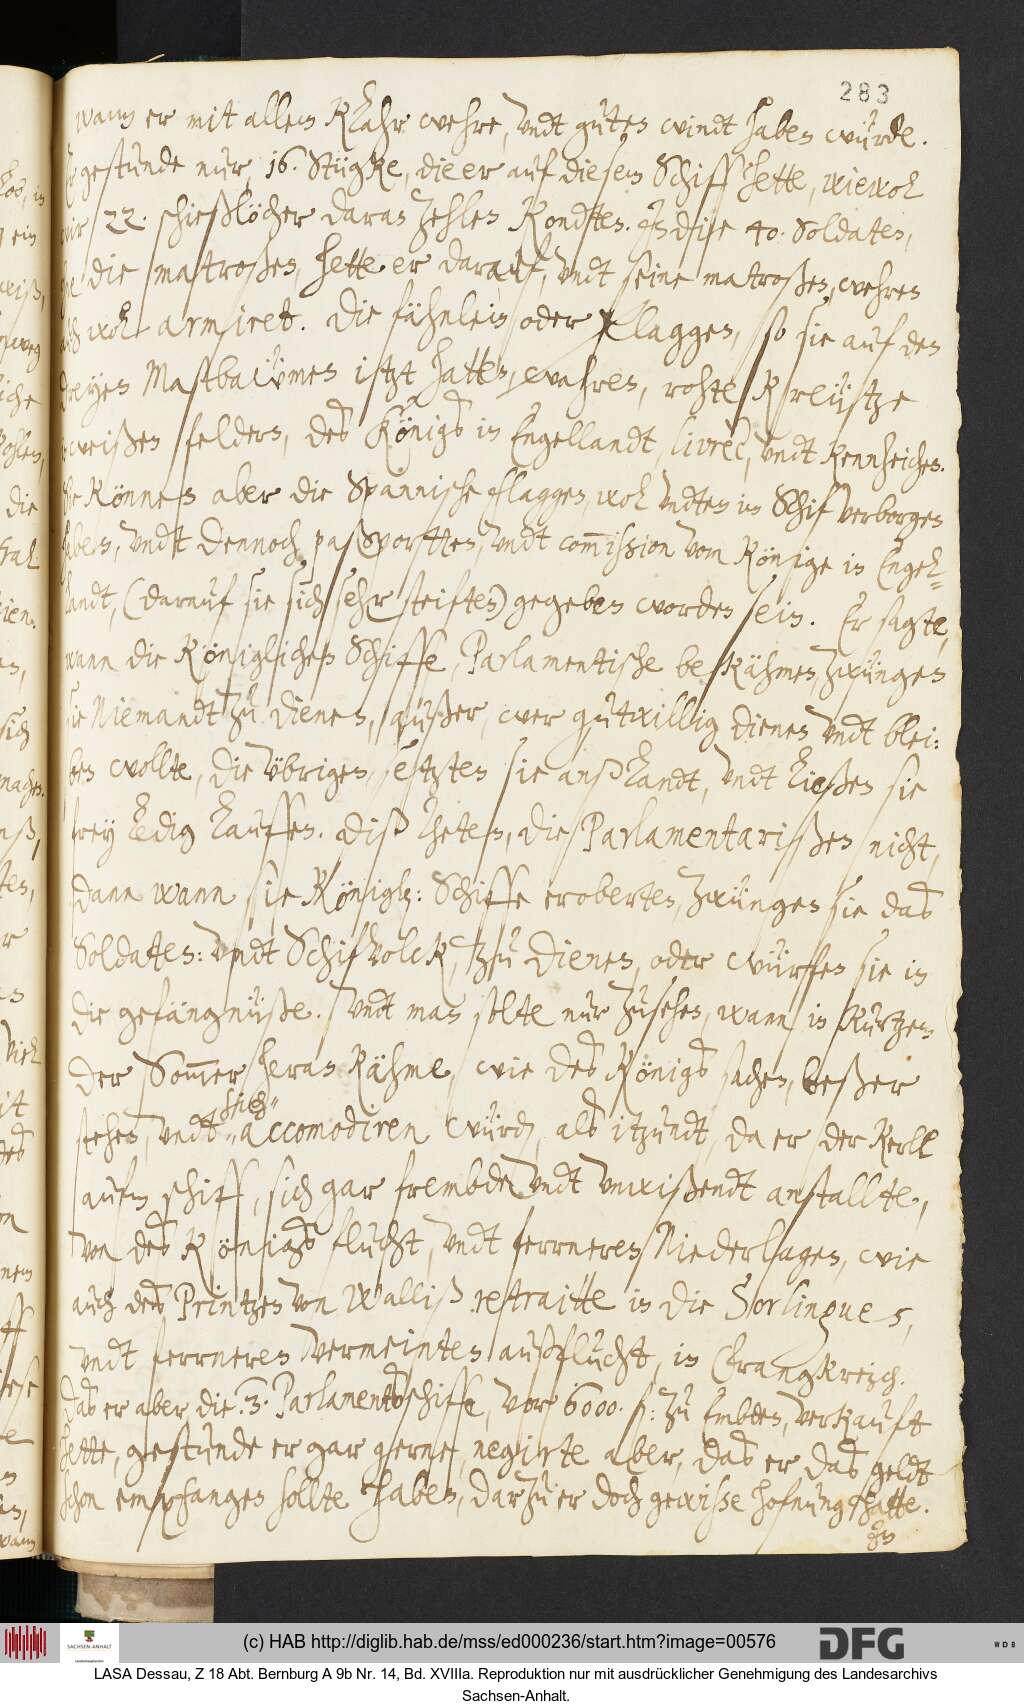 283
wann er mit allem Klahr wehre, undt guten windt haben würde.
Er gestunde nur, 16. Stügke, die er auf diesem Schiff hette, wiewol
wir 22. schießlöcher daran zehlen kondten. In die 40. Soldaten,
ohne die matroßen, hette er darauf, undt seine matroßen, wehren
auch wol armiret. Die fähnlein oder Flaggen, so sie auf den
dreyen Mastbaümen itzt hatten, wahren, rohte Kreütze
in weißen feldern, des Königs in Engellandt, livrèe, undt Kennzeichen.
Sie können aber die Spannische flaggen, wol undten im Schif verborgen
haben, undt dennoch paßporten, undt com̄ission vom Könige in Engel¬
landt, (darauf sie sich sehr steiften) gegeben worden sein. Er sagte,
wann die Königlichen Schiffe, Parlamentische bekähmen, zwüngen
sie Niemandt zu dienen, außer, wer gutwillig dienen undt blei:
ben wollte, die übrigen, setzten sie anß Landt, undt ließen sie
frey ledig lauffen. diß theten, die Parlamentarißen nicht,
dann wann sie Königl: Schiffe eroberten, zwüngen sie das
Soldaten: undt Schifvolck, zu dienen, oder würffen sie in
die gefängnüße. Undt man solte nur zusehen, wann in kurtzem
der Som̄er heran kähme, wie des Königs sachen, beßer
stehen, undt sich
accomodiren würden, als itzundt, da er der Kerll
aufm schiff, sich gar frembde undt unwißendt anstallte,
von des Königs flucht, undt ferrneren Niederlagen, wie
auch des Printzen von Walliß retraitte in die Sorlingues,
undt ferrneren vermeinten außflucht, in Frangkreich.
Das er aber die .3. Parlamentsschiffe, vor 6000. f: zu Embden, verkauft
hette, gestunde er gar gerne, negirte aber, das er das geldt
schon empfangen sollte haben, darzu er doch gewisse hofnung hatte.
In
(c) HAB http://diglib.hab.de/mss/ed000236/start.htm?image=00576
SACHSEN-ANHALT
DFG
WDB
LASA Dessau, Z 18 Abt. Bernburg A 9b Nr. 14, Bd. XVIIIa. Reproduktion nur mit ausdrücklicher Genehmigung des Landesarchivs
Sachsen-Anhalt.